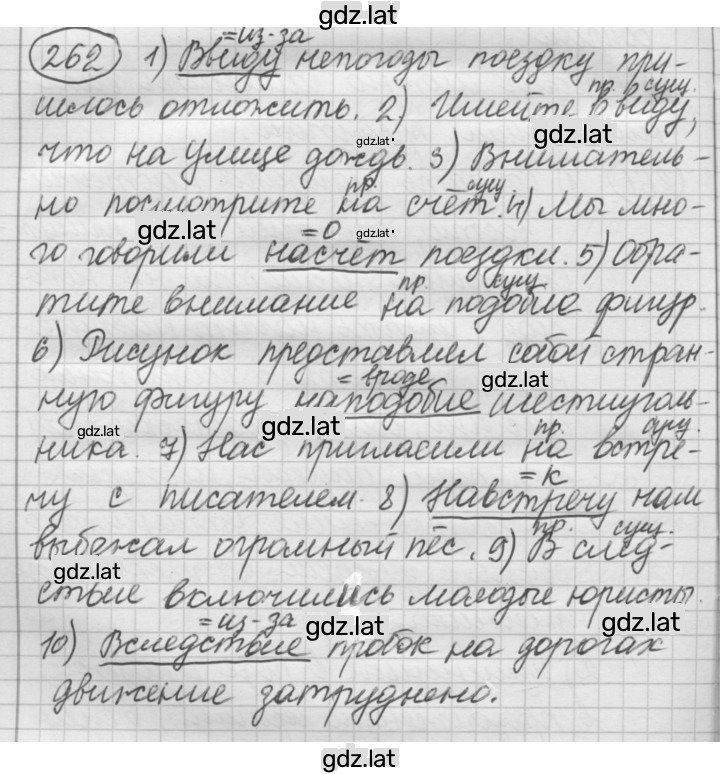 gdz.lat
=из-за
262 1) Ввиду непогоды поездку при-
пр. сущ.
шлось отложить. 2) Имейте в виду,
gdz.lat
gdz.lat
что на улице дождь. 3) Вниматель-
пр. сущ.
но посмотрите на счёт. 4) Мы мно-
gdz.lat =о gdz.lat
го говорили насчёт поездки. 5) Обра-
пр. сущ.
тите внимание на подобие фигур.
6) Рисунок представлял собой стран-
=вроде gdz.lat
ную фигуру наподобие шестиуголь-
gdz.lat gdz.lat пр. сущ.
ника. 7) Нас пригласили на встре-
=к
чу с писателем. 8) Навстречу нам
пр. сущ.
выбежал огромный пёс. 9) В след-
gdz.lat
ствие включились молодые юристы.
=из-за gdz.lat gdz.lat
10) Вследствие пробок на дорогах
движение затруднено.
gdz.lat